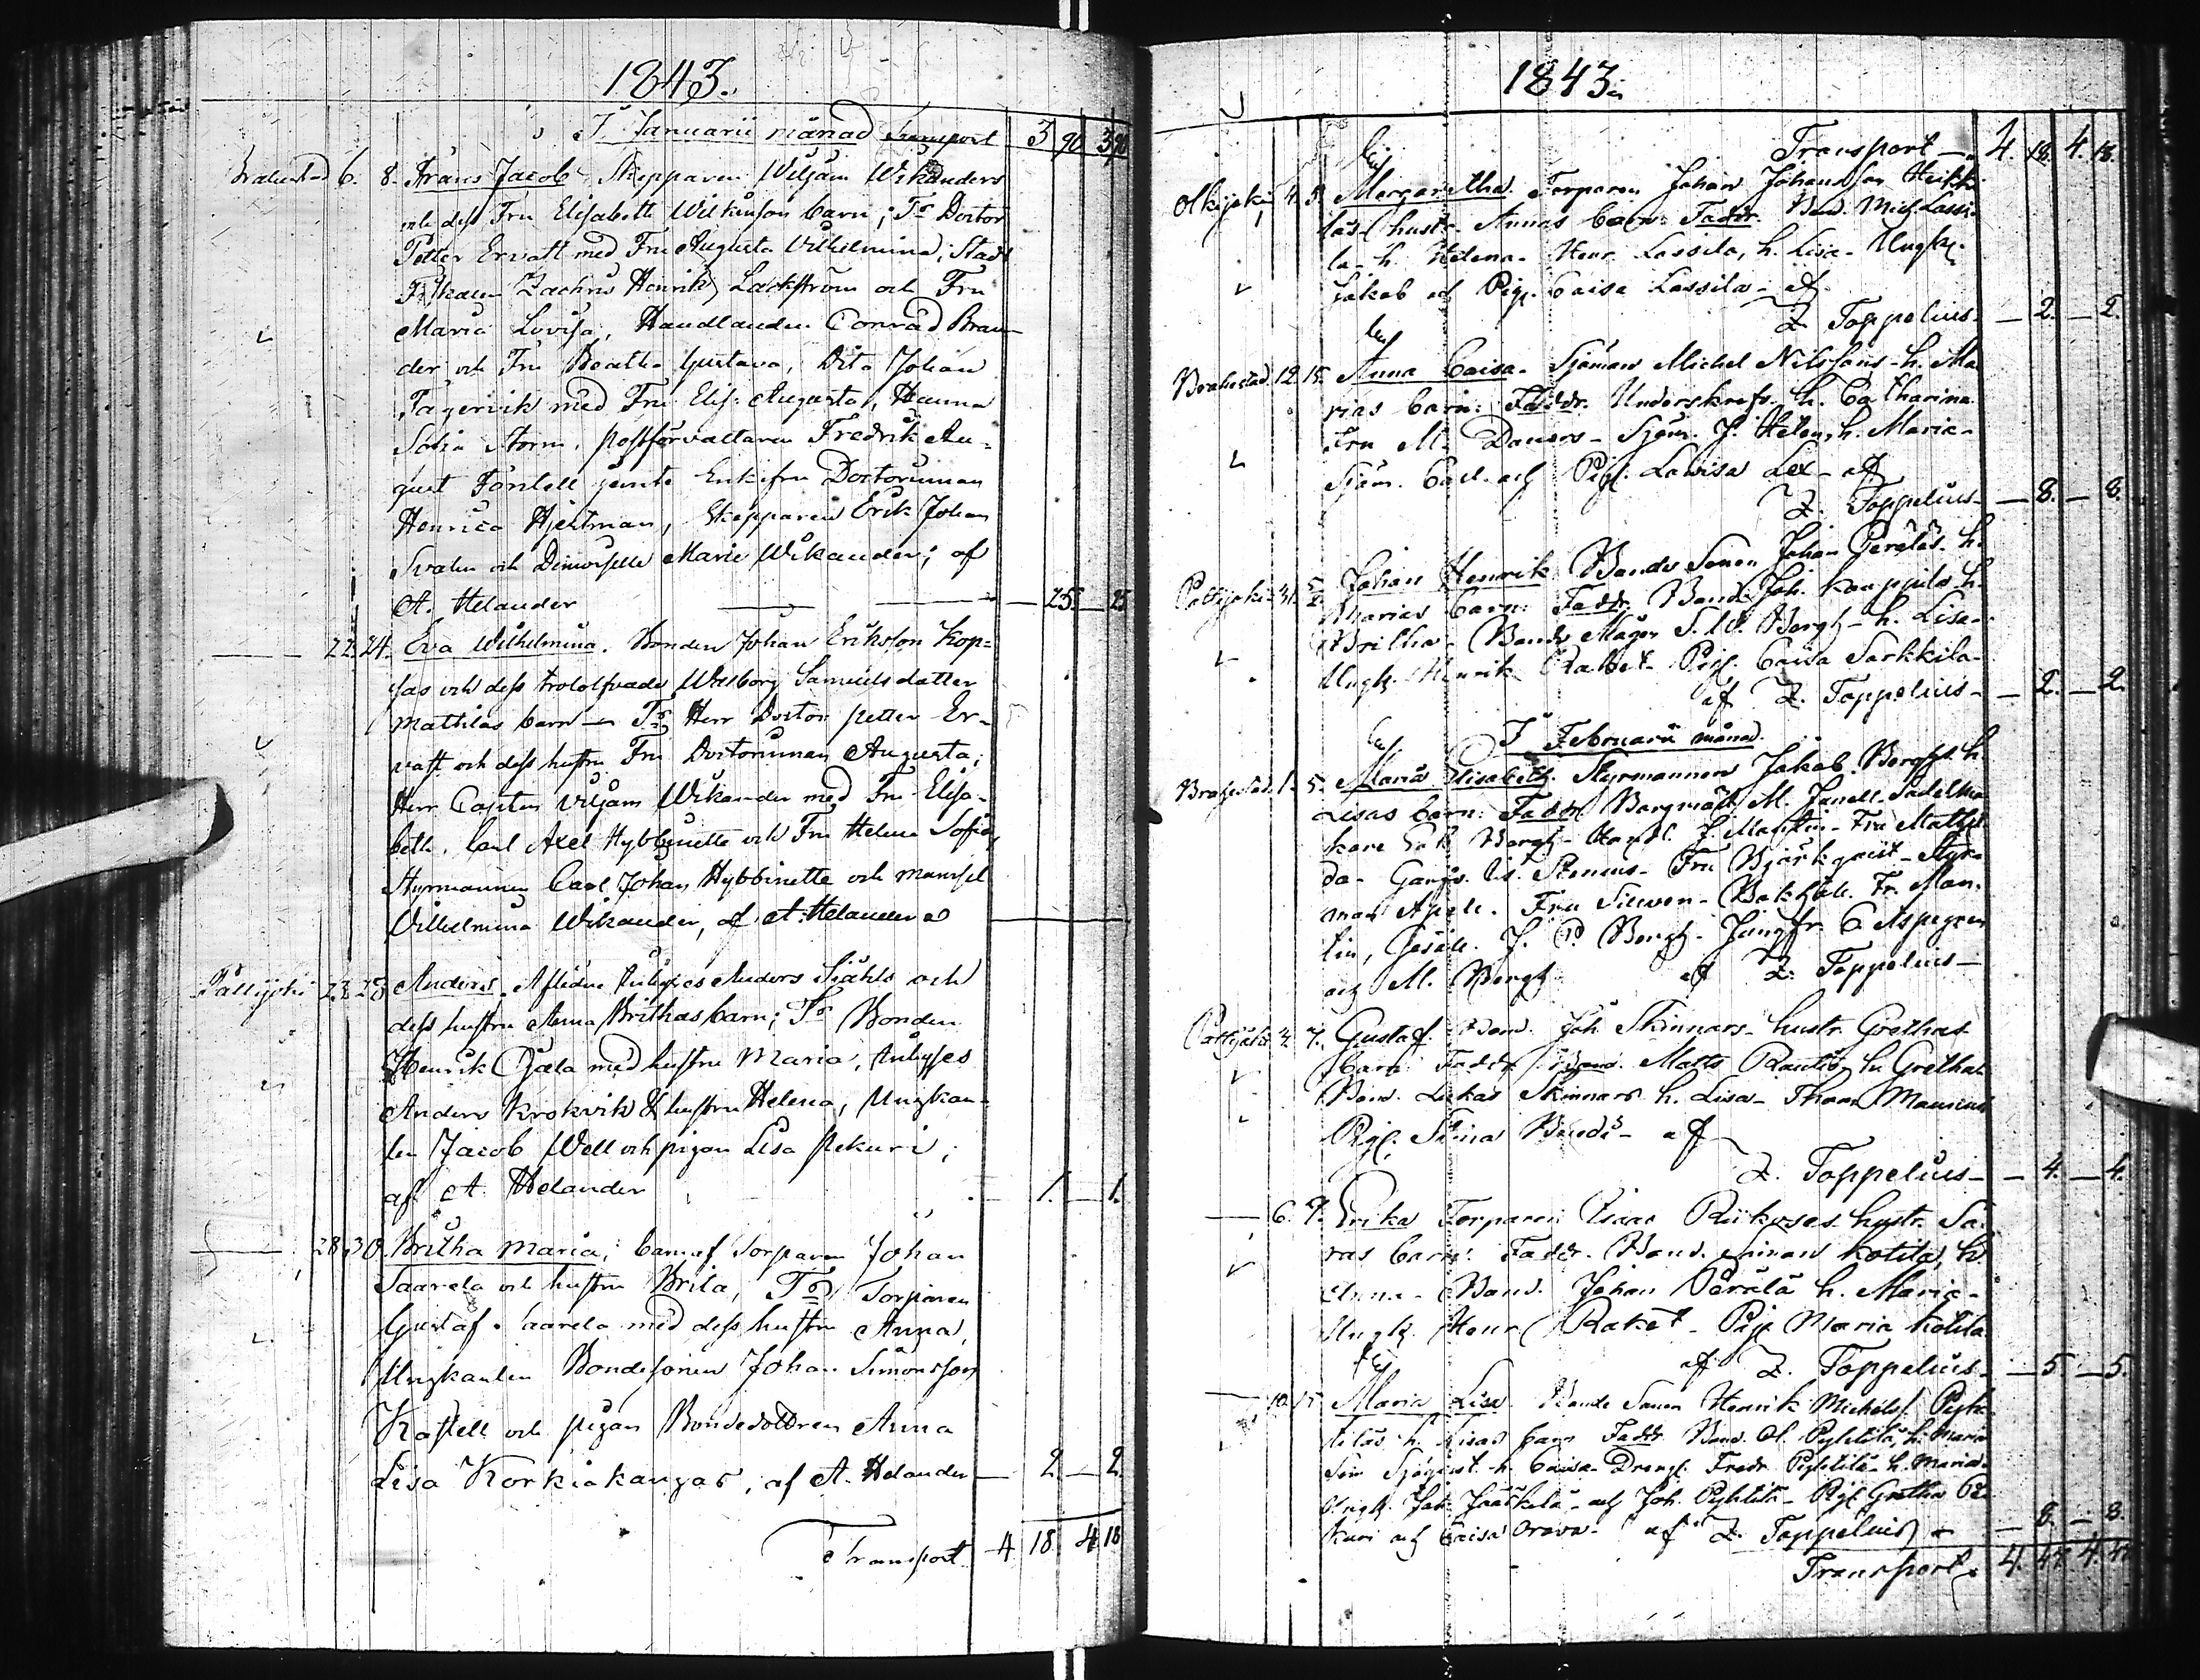 1843.
I Januarii månad Transport 3 90 3 90
Brahestad 6. 8. Frans Jacob Skepparen Wiljam Wikanders
och dess Fru Elisabeth Wilkinson barn; Tr Doctor
Petter Ervast med Fru Augusta Vilhelmina, Stads
Fiskalen Zachris Henrik Lackström och Fru
Maria Lovisa, Handlanden Conrad Bran-
der och Fru Beatha Gustava, Dito Johan
Fagervik med Fru Elis. Augusta, Hanna
Sofia Storm, postförvaltaren Fredrik Au-
gust Forsell jemte Enkefru Doctorinnan
Henrica Hjertman, Skepparen Erik Johan
Svahn och Demoiselle Maria Wikander; af
A. Helander — 25. — 25
— 22. 24. Eva Wilhelmina. Bonden Johan Eriksson Kop-
sas och dess trolofvade Walborg Samuelsdotter
Mathilas barn — Tr Herr Doctor petter Er-
vast och dess hustru Fru Doctorinnan Augusta;
Herr Capten Viljam Wikander med Fru Elisa-
beth. Carl Axel Hybbinette och Fru Helena Sofia,
Styrmannen Carl Johan Hybbinette och mamsel
Vilhelmina Wikander, af A. Helander
Pattijoki 23. 28 Anders. Aflidne Anders och
dess hustru Anna Brithas barn; Tr Bonden
Henrik Ojala med hustru Maria,
Anders Krokvik & hustru Helena, Ungkar-
len Jacob Well och pigan Lisa Pekuri;
af A. Helander 1. — 1.
— 28. 30. Britha Maria; barn af Torparen Johan
Saarela och hustru Brita, Tr Torparen
Gustaf Saarela med dess hustru Anna,
Ungkarlen Bondesonen Johan Simonsson
Kastell och pigan Bondedottren Anna
Lisa Korkiakangas, af A. Helander — 2 — 2
Transport 4 18 4 18
1843.
Transport — 4. 18. 4. 18.
Olkijoki 4. 5. Margaretha. Torparen Johan Johansson Heikki-
läs hustr. Annas barn: Faddr. Bond. Mich. Lassi-
la h. Helena. Henr. Lassila, h. Lisa. Ungk.
Jakob och Pig. Caisa Lassila - af
Z. Toppelius. — 2. — 2.
Brahestad 12. 15. Anna Caisa. Sjöman Michel Nilssons h. Ma-
rias barn: Faddr. Underskrefs. h. Catharina
Fru M. - Sjöm. J. Helen, h. Maria -
Sjöm. Carl och Pig. Lovisa - af
Z. Toppelius — 8. — 8.
Pattijoki 31. 5/2 Johan Henrik Bonde Sonen Johan Peräläs h.
Marias barn: Faddr. Bond. Joh. Kauppila h.
Britha. Bonde S. W. Bergh - h. Lisa -
Ungk. Henrik Raket - Pig. Caisa Sarkkila -
af Z. Toppelius — 2. — 2.
I Februarii månad.
Brahestad 1. 5. Maria Elisabeth. Styrmannen Jakob Berghs h.
Lisas barn: Faddr. Borgmäst. M. Janell. Sadelma-
kare Erik Bergh - Handl. J. - Fru Mathil-
da - - Fru Björkqvist - Styr-
man . Fru - . Fr. Man-
lin, Gesäll. J. P. Bergh. Jungfr. C Aspegren
och M. Bergh. af Z. Toppelius —
Pattijoki 4. 7. Gustaf. Bond. Joh. Skinnars - hustr. Grethas
barn Faddr. Bond. Matts Rautio h. Gretha
Bond. Lukas Skinnars h. Lisa - Thom.
Pig. Stina - af
Z. Toppelius — 4. — 4.
— 6. 7. Erika Torparen Isaac hustr. Sa-
ras barn: Faddr. Bond. Simon Kotila, h.
Anna - Bond. Johan Perälä h. Maria -
Ungk. Henr. Raket - Pig. Maria Kotila
af Z. Toppelius — 5. — 5.
— 10. 15 Maria Lisa. Bonde Sonen Henrik Michelss.
h. Lisas barn Faddr. Bond. h. Maria
Sjöqvist h. Caisa - Dreng. Fredr. h. Maria -
Ungk. Jak. Jääskelä - och Joh. - Pig. Gretha Pe-
kuri och Caisa Orava - af Z. Toppelius — 8. — 8.
Transport 4.